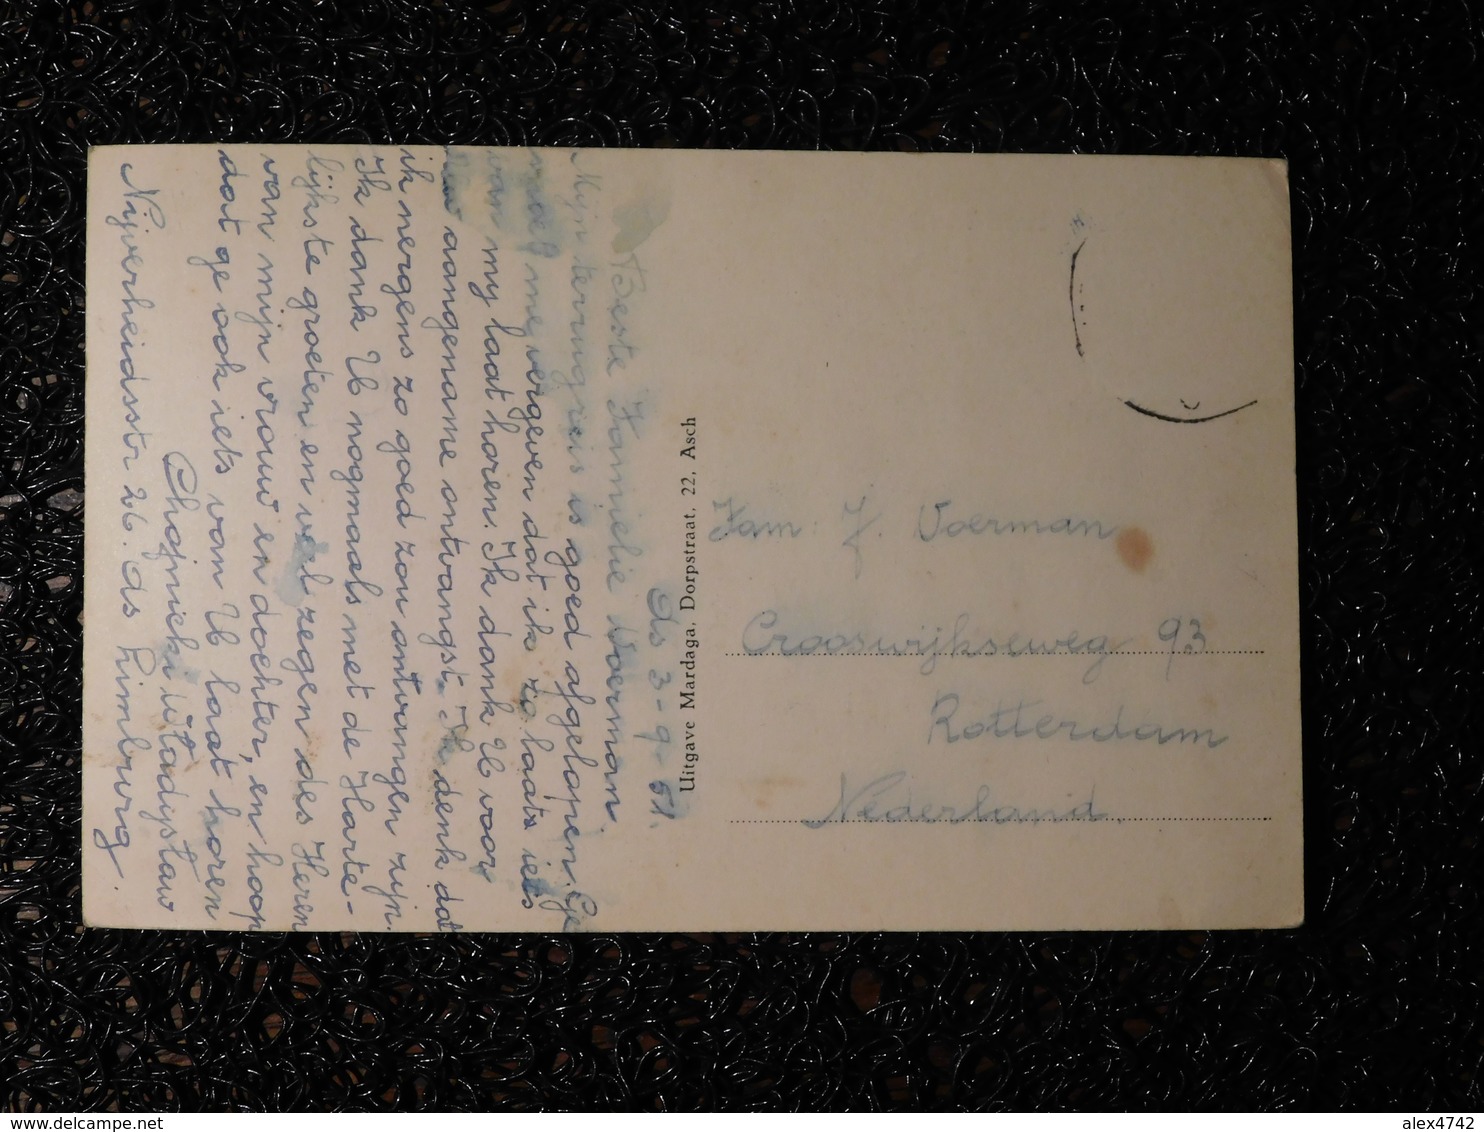 As 3-9-51.
Beste Familie Voerman.
Mijn terrugreis is goed afgelopen. Ge
moet me vergeven dat ik zo laats iets
van my laat horen. Ik dank U voor
Uw aangename ontvangst. Ik denk dat
ik nergens zo goed zou ontvangen zijn.
Ik dank U nogmaals met de Harte-
lijkste groeten en veel zegen des Heren
van mijn vrouw en dochter, en hoop
dat ge ook iets van U laat horen
Chojnicki Wladystaw
Nijverheidsstr 26. As Limburg.
Uitgave Mardaga, Dorpstraat, 22, Asch
Fam. J. Voerman
Crooswijkseweg 93
Rotterdam
Nederland.
delcampe.net
alex4742